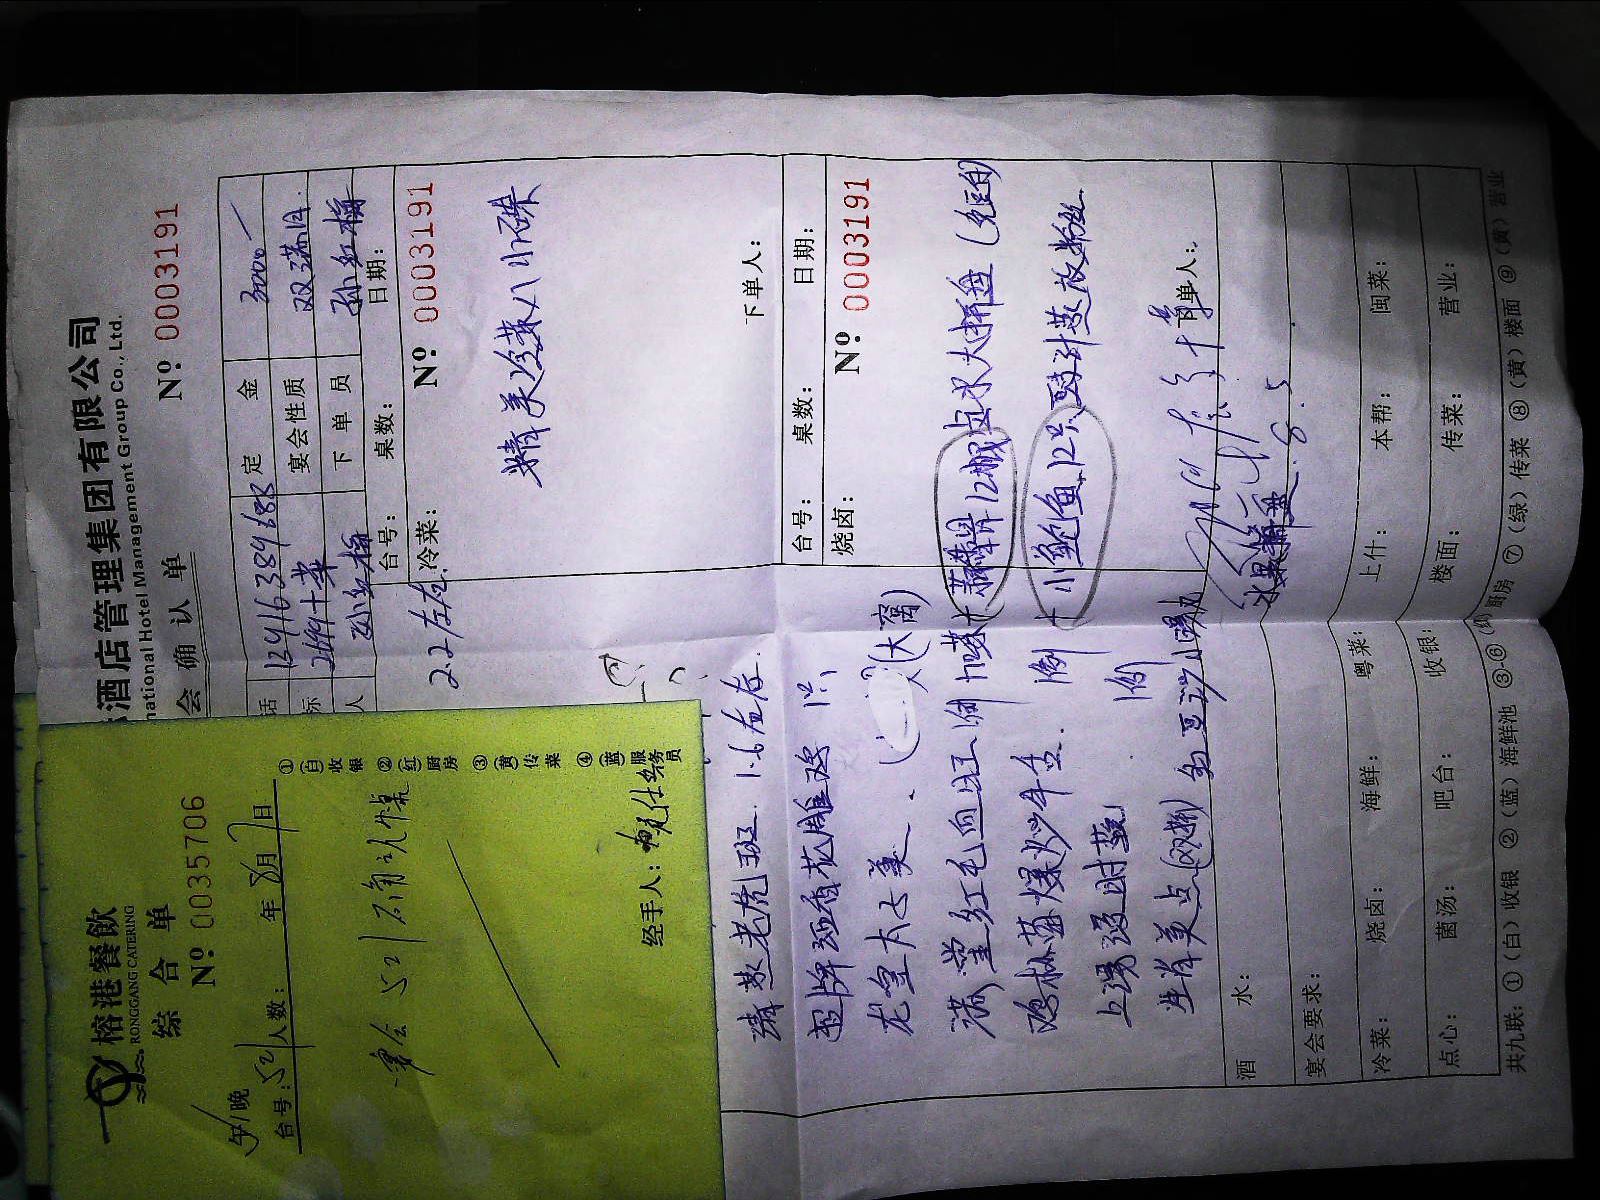 榕港餐飲
RONGGANG CATERING
综合单
Nº 0035706
午/晚
台号:521人数: 年 8月7日
宴会521确认单
经手人:
①(白)收银 ②(红)厨房 ③(黄)传菜 ④(蓝)服务员
酒店管理集团有限公司
national Hotel Management Group Co., Ltd.
会确认单
Nº 0003191
话
标 2699十菜
人 孙红梅
定金 3000—
宴会性质 双满月
下单员 孙红梅
台号: 桌数: 日期:
冷菜: Nº 0003191
精美冷菜八小碟
下单人:
台号: 桌数: 日期:
烧卤: Nº 0003191
卤水大拼盘
下单人:
2.2左右
清蒸老虎斑 1.6左右
花雕鸡 1只
龙皇大七美 (大离)
满堂红毛血旺 1例
蒜 12根
小鲍鱼12只 豉汁蒸放粉丝
爆炒牛舌 1例
上汤浸时蔬 1例
生肖美点(双拼)
8.5
酒水:
宴会要求:
冷菜: 烧卤: 海鲜: 粤菜: 上什: 本帮: 闽菜:
点心: 菌汤: 吧台: 收银: 楼面: 传菜: 营业:
共九联: ①(白)收银 ②(蓝)海鲜池 ③-⑥(红)厨房 ⑦(绿)传菜 ⑧(黄)楼面 ⑨(黄)营业